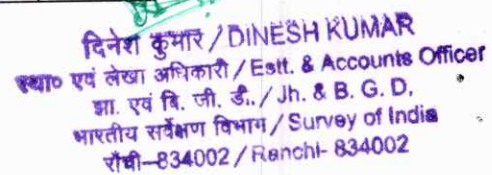 दिनेश कुमार / DINESH KUMAR
स्था० एवं लेखा अधिकारी / Estt. & Accounts Officer
झा. एवं बि. जी. डी. / Jh. & B. G. D.
भारतीय सर्वेक्षण विभाग / Survey of India
राँची-834002 / Ranchi- 834002